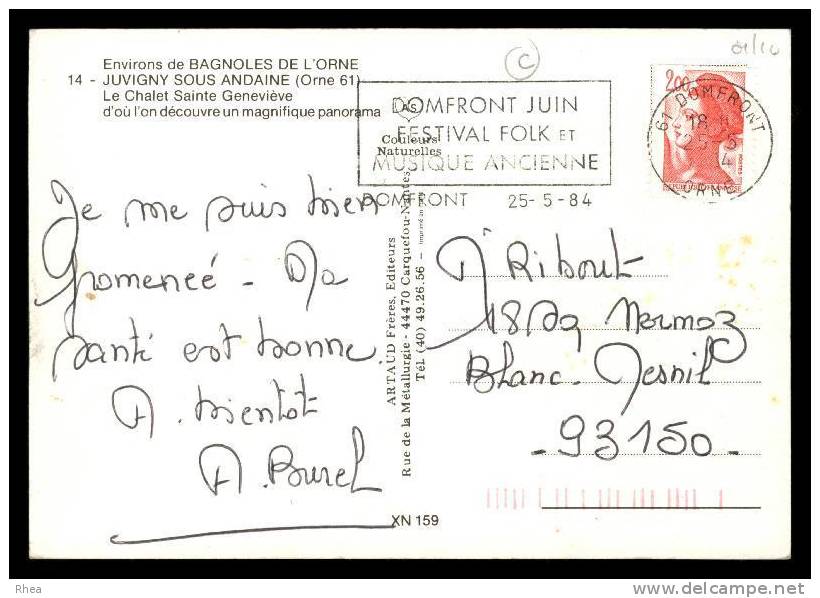 Environs de BAGNOLES DE L'ORNE
14 - JUVIGNY SOUS ANDAINE (Orne 61)
Le Chalet Sainte Geneviève
d'où l'on découvre un magnifique panorama
01/10
C
2,00
61 DOMFRONT
18 H
25-5
ORNE
DOMFRONT JUIN
FESTIVAL FOLK ET
MUSIQUE ANCIENNE
DOMFRONT 25-5-84
Couleurs
Naturelles
Je me suis bien
promeneé - Ma
santé est bonne.
A. bientot
A. Burel
ARTAUD Frères, Editeurs
Rue de la Métallurgie - 44470 Carquefou-Nantes
Tél. (40) 49.26.56 -
Ribout
Mermoz
Blanc Mesnil
- 93150 -
XN 159
Rhea
delcampe.net